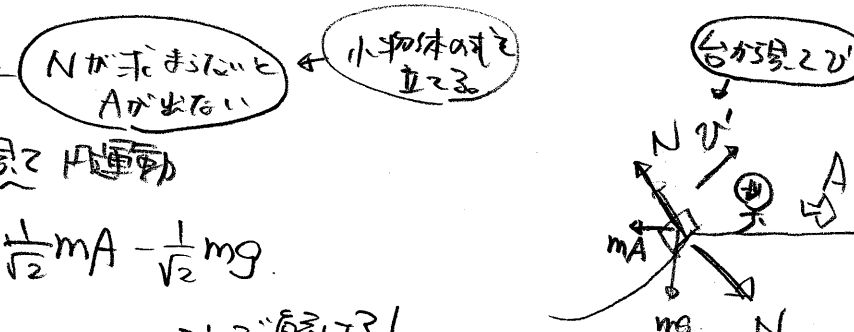 Nが求まらないと
Aが出ない
小物体の式を
立てる。
台から見てv'
見て 円運動
N v'
A
mA
1/√2 mA − 1/√2 mg.
mg N